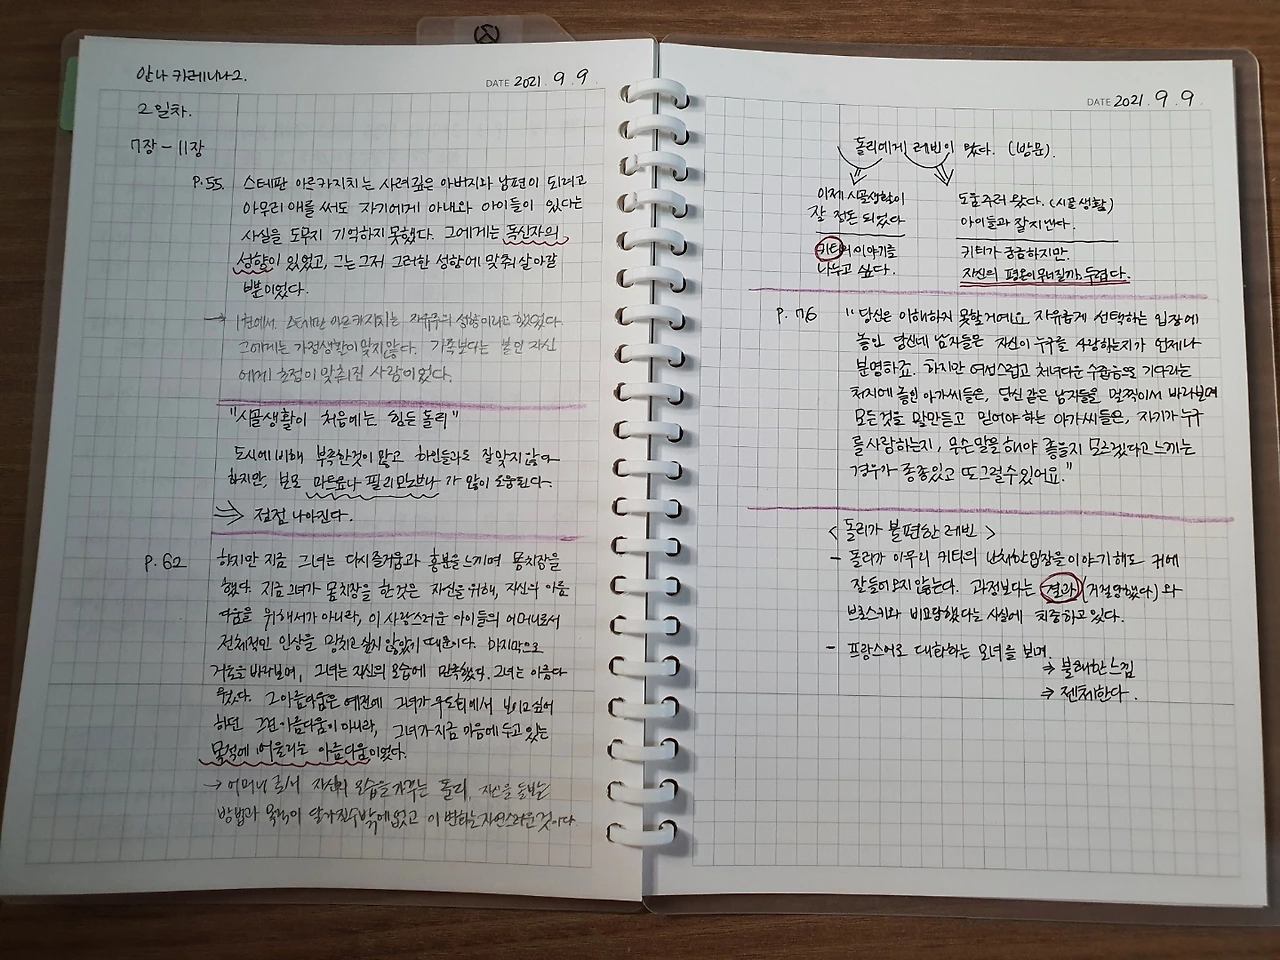 안나 카레니나2.
DATE 2021. 9. 9
2일차.
7장 - 11장
P.55. 스테판 아르카지치는 사려깊은 아버지와 남편이 되려고
아무리 애를 써도 자기에게 아내와 아이들이 있다는
사실을 도무지 기억하지 못했다. 그에게는 독신자의
성향이 있었고, 그는 그저 그러한 성향에 맞춰 살아갈
뿐이었다.
→ 1권에서 스테판 아르카지치는 자유주의 성향이라고 했었다.
그에게는 가정생활이 맞지않다. 가족보다는 본인 자신
에게 초점이 맞춰진 사람이었다.
"시골생활이 처음에는 힘든 돌리"
도시에 비해 부족한것이 많고 하인들과도 잘 맞지 않다
하지만, 보모 마트료나 필리모노브나가 많이 도움된다.
⇒ 점점 나아진다.
P.62 하지만 지금 그녀는 다시 즐거움과 흥분을 느끼며 몸치장을
했다. 지금 그녀가 몸치장을 한 것은 자신을 위해, 자신의 아름
다움을 위해서가 아니라, 이 사랑스러운 아이들의 어머니로서
전체적인 인상을 망치고 싶지 않았기 때문이다. 마지막으로
거울을 바라보며, 그녀는 자신의 모습에 만족했다. 그녀는 아름다
웠다. 그 아름다움은 예전에 그녀가 무도회에서 보이고 싶어
하던 그런 아름다움이 아니라, 그녀가 지금 마음에 두고 있는
목적에 어울리는 아름다움이었다.
→ 어머니로서 자신의 모습을 가꾸는 돌리. 자신을 돌보는
방법과 목적이 달라질수밖에 없고 이 변화는 자연스러운 것이다.
DATE 2021. 9. 9
돌리에게 레빈이 왔다. (방문).
이제 시골생활이
잘 정돈 되었다
키티의 이야기를
나누고 싶다.
도움주러 왔다. (시골 생활)
아이들과 잘 지낸다.
키티가 궁금하지만.
자신의 평온이 무너질까, 두렵다.
P. 76 "당신은 이해하지 못할거예요. 자유롭게 선택하는 입장에
놓인 당신네 남자들은 자신이 누구를 사랑하는지가 언제나
분명하죠. 하지만 여성스럽고 처녀다운 수줍음으로 기다리는
처지에 놓인 아가씨들은, 당신 같은 남자들을 멀찍이서 바라보며
모든것을 말만듣고 믿어야 하는 아가씨들은, 자기가 누구
를 사랑하는지, 무슨 말을 해야 좋을지 모르겠다고 느끼는
경우가 종종있고 또 그럴 수 있어요."
< 돌리가 불편한 레빈 >
- 돌리가 아무리 키티의 난처한 입장을 이야기해도 귀에
잘 들어오지 않는다. 과정보다는 결과 (거절당했다)와
브론스키와 비교당했다는 사실에 치중하고 있다.
- 프랑스어로 대화하는 모녀를 보며.
⇒ 불쾌한 느낌
⇒ 젠체한다.